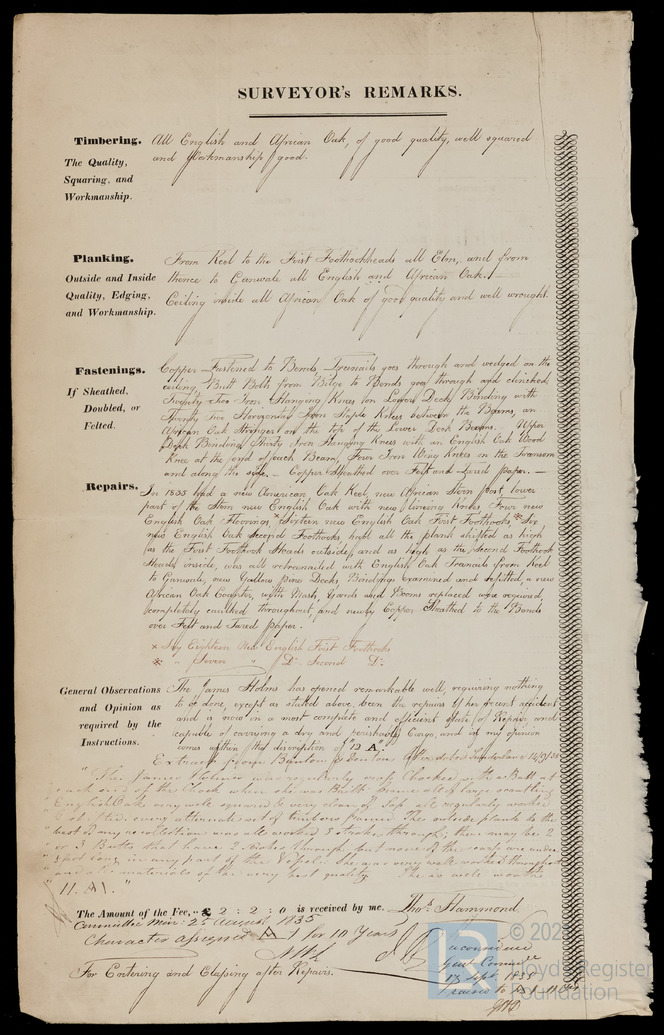 SURVEYOR's REMARKS.
Timbering.
The Quality,
Squaring, and
Workmanship.
All English and African Oak, of good quality, well squared
and Workmanship good.
Planking.
Outside and Inside
Quality, Edging,
and Workmanship.
From Keel to the First Foothookheads all Elm, and from
thence to Gunwale all English and African Oak.
Ceiling inside all African Oak of good quality and well wrought.
Fastenings.
If Sheathed,
Doubled, or
Felted.
Copper Fastened to Bends, Treenails goes through and wedged on the
ceiling, Butt Bolts from Bilge to Bends goes through and clinched
Twenty Two Iron Hanging Knees on Lower Deck, Binding with
Twenty Two Horizontal Iron Staple Knees between the Beams, an
African Oak Stronger on the top of the Lower Deck Beams. Upper
Deck Binding Thirty Iron Hanging Knees with an English Oak Wood
Knee at the end of each Beam, Four Iron Wing Knees in the Transom
and along the side. Copper Sheathed over Felt and Tared paper.
Repairs.
In 1835 had a new American Oak Keel, new African Stern Post, lower
part of the Stem new English Oak with new Knees, Four new
English Oak Floorings × Sixteen new English Oak First Foothooks, * Six
new English Oak Second Foothooks, had all the plank shifted as high
as the First Foothook Heads outside, and as high as the Second Foothook
Heads inside, was all retreenailed with English Oak Trenails from Keel
to Gunwale, new Yallow pine Decks, Bindings examined and refitted, a new
African Oak Counter, with Mash, Yards and Booms replaced were required,
completely caulked throughout, and newly Copper Sheathed to the Bends
over Felt and Tared paper.
× Say Eighteen New English First Foothooks
* " Seven " Do Second Do
General Observations
and Opinion as
required by the
Instructions.
The James Holms has opened remarkable well, requiring nothing
to be done, except as stated above, been the repairs of her recent accident
and is now in a most complete and efficient state of Repair, and
capable of carrying a dry and perishable Cargo, and in my opinion
comes within the discription of "12 A".
Extract from Letter dated Sunderland
"The James Holmes was regularly Chocked with a Butt at
each end of the Chock when she was Built frame all of large scantling
English Oak very well squared & very clear of Sap all regularly
every alternate set of timbers framed. The outside planks to the
best of my recollection was all worked 3 strakes through; there may be 2
or 3 Butts that have 2 strakes through but none of the are under
5 foot long in any part of the Vessel. She was very well worked throughout
and all materials of the very best quality. She is well worth
11. A1."
The Amount of the Fee, £ 2 : 2 : 0 is received by me, Thos. Hammond
Committee Min: 25 August 1835
Character assigned A 1 for 10 Years
reconsidered
Genl Committee
17 Sept. 1835
raised to A 1 11 Yrs
For Entering and Classing after Repairs.
© 202
Lloyd's Register
Foundation